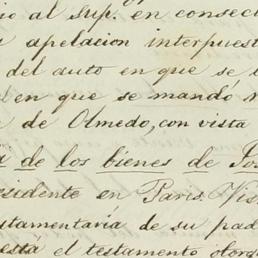 io al Sup. en consec
apelacion interpuest
del auto en que se
en que se mandó
de Olmedo, con vista
de los bienes de Jos
esidente en Paris. Vis
stamentaria de su pad
esta el testamento otorg